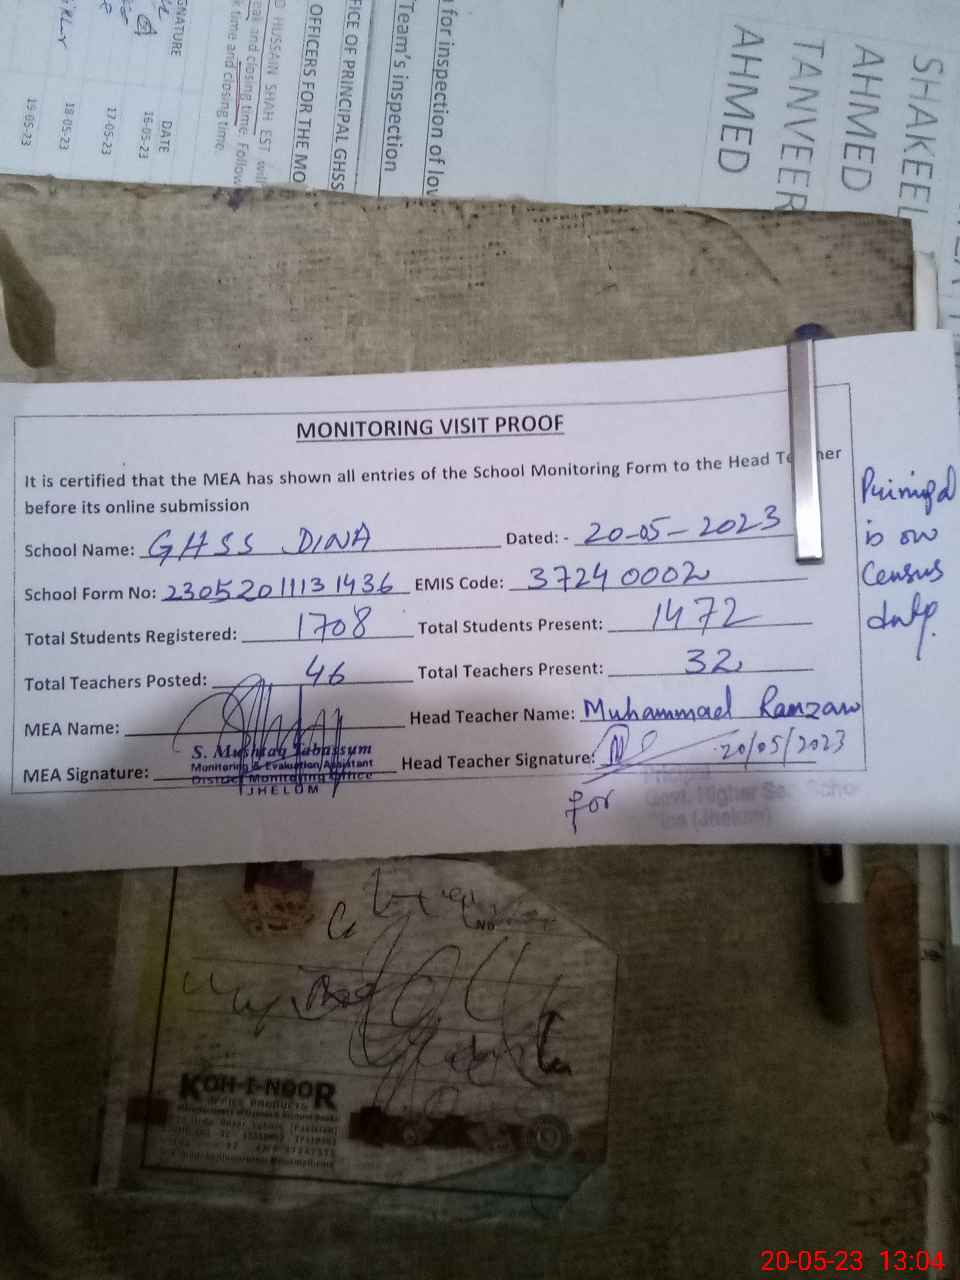 SHAKEEL
AHMED
TANVEER
AHMED
for inspection of
Team's inspection
OFFICE OF PRINCIPAL GHSS
OFFICERS FOR THE MO
HUSSAIN SHAH EST
and closing time. Follow
time and closing time.
DATE
16-05-23
17-05-23
18-05-23
19-05-23
MONITORING VISIT PROOF
It is certified that the MEA has shown all entries of the School Monitoring Form to the Head Te her
before its online submission
School Name: GHSS DINA Dated: - 20-05-2023
School Form No: 23052011131436 EMIS Code: 37240002
Total Students Registered: 1708 Total Students Present: 1472
Total Teachers Posted: 46 Total Teachers Present: 32
MEA Name: Head Teacher Name: Muhammad Ramzan
S. Mushtaq Tabassum
Monitoring & Evaluation Assistant
MEA Signature: Head Teacher Signature: 20/05/2023
District Monitoring Office
JHELUM
for
Principal
Govt. Higher Sec. Scho
(Jhelum)
Principal
is on
Census
duty.
No
KOH-I-NOOR
OFFICE PRODUCTS
20-05-23 13:04